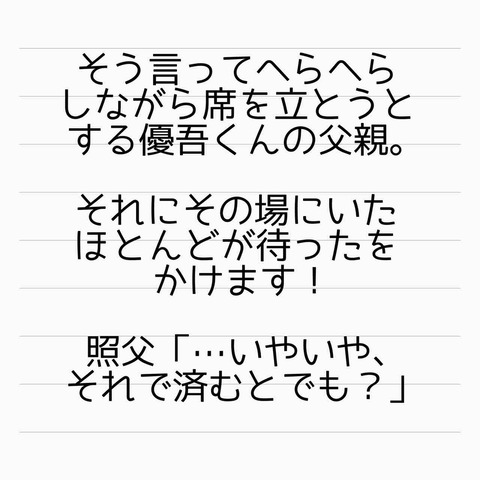 そう言ってへらへら
しながら席を立とうと
する優吾くんの父親。
それにその場にいた
ほとんどが待ったを
かけます！
照父「…いやいや、
それで済むとでも？」